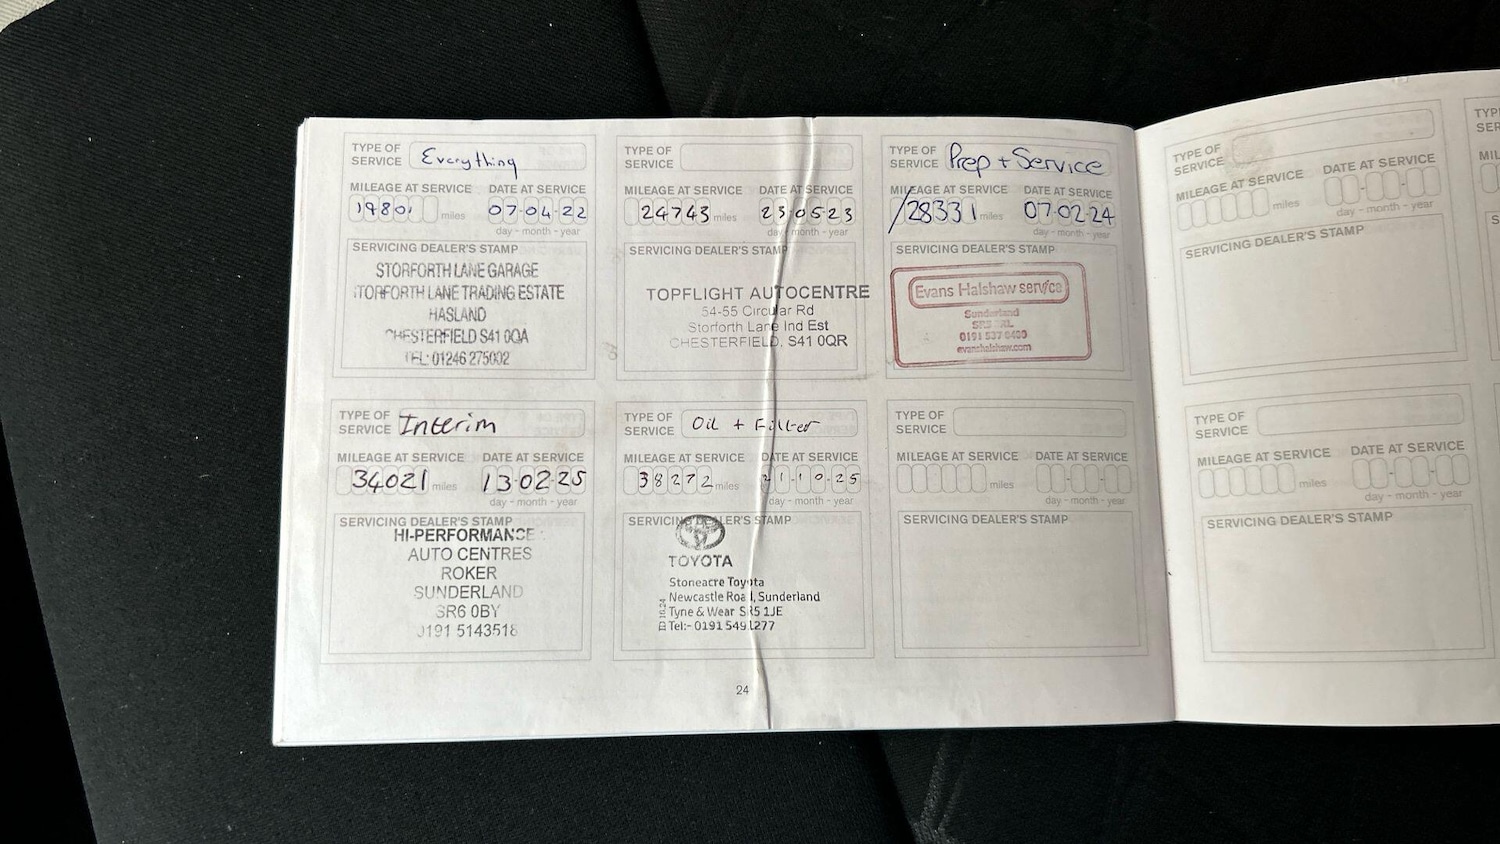 TYPE OF SERVICE Everything
MILEAGE AT SERVICE DATE AT SERVICE
19801 miles 07-04-22
day - month - year
SERVICING DEALER'S STAMP
STORFORTH LANE GARAGE
STORFORTH LANE TRADING ESTATE
HASLAND
CHESTERFIELD S41 0QA
TEL: 01246 275002
TYPE OF SERVICE
MILEAGE AT SERVICE DATE AT SERVICE
24743 miles 23-05-23
day - month - year
SERVICING DEALER'S STAMP
TOPFLIGHT AUTOCENTRE
54-55 Circular Rd
Storforth Lane Ind Est
CHESTERFIELD, S41 0QR
TYPE OF SERVICE Prep + Service
MILEAGE AT SERVICE DATE AT SERVICE
/28331 miles 07-02-24
day - month - year
SERVICING DEALER'S STAMP
Evans Halshaw service
Sunderland
0191 537 0430
evanshalshaw.com
TYPE OF SERVICE Interim
MILEAGE AT SERVICE DATE AT SERVICE
34021 miles 13-02-25
day - month - year
SERVICING DEALER'S STAMP
HI-PERFORMANCE
AUTO CENTRES
ROKER
SUNDERLAND
SR6 0BY
0191 5143518
TYPE OF SERVICE Oil + Filter
MILEAGE AT SERVICE DATE AT SERVICE
38272 miles 21-10-25
day - month - year
SERVICING DEALER'S STAMP
TOYOTA
Stoneacre Toyota
Newcastle Road, Sunderland
Tyne & Wear SR5 1JE
Tel:- 0191 549 1277
TYPE OF SERVICE
MILEAGE AT SERVICE DATE AT SERVICE
miles
day - month - year
SERVICING DEALER'S STAMP
24
TYPE OF SERVICE
MILEAGE AT SERVICE DATE AT SERVICE
miles
day - month - year
SERVICING DEALER'S STAMP
TYPE OF SERVICE
MILEAGE AT SERVICE DATE AT SERVICE
miles
day - month - year
SERVICING DEALER'S STAMP